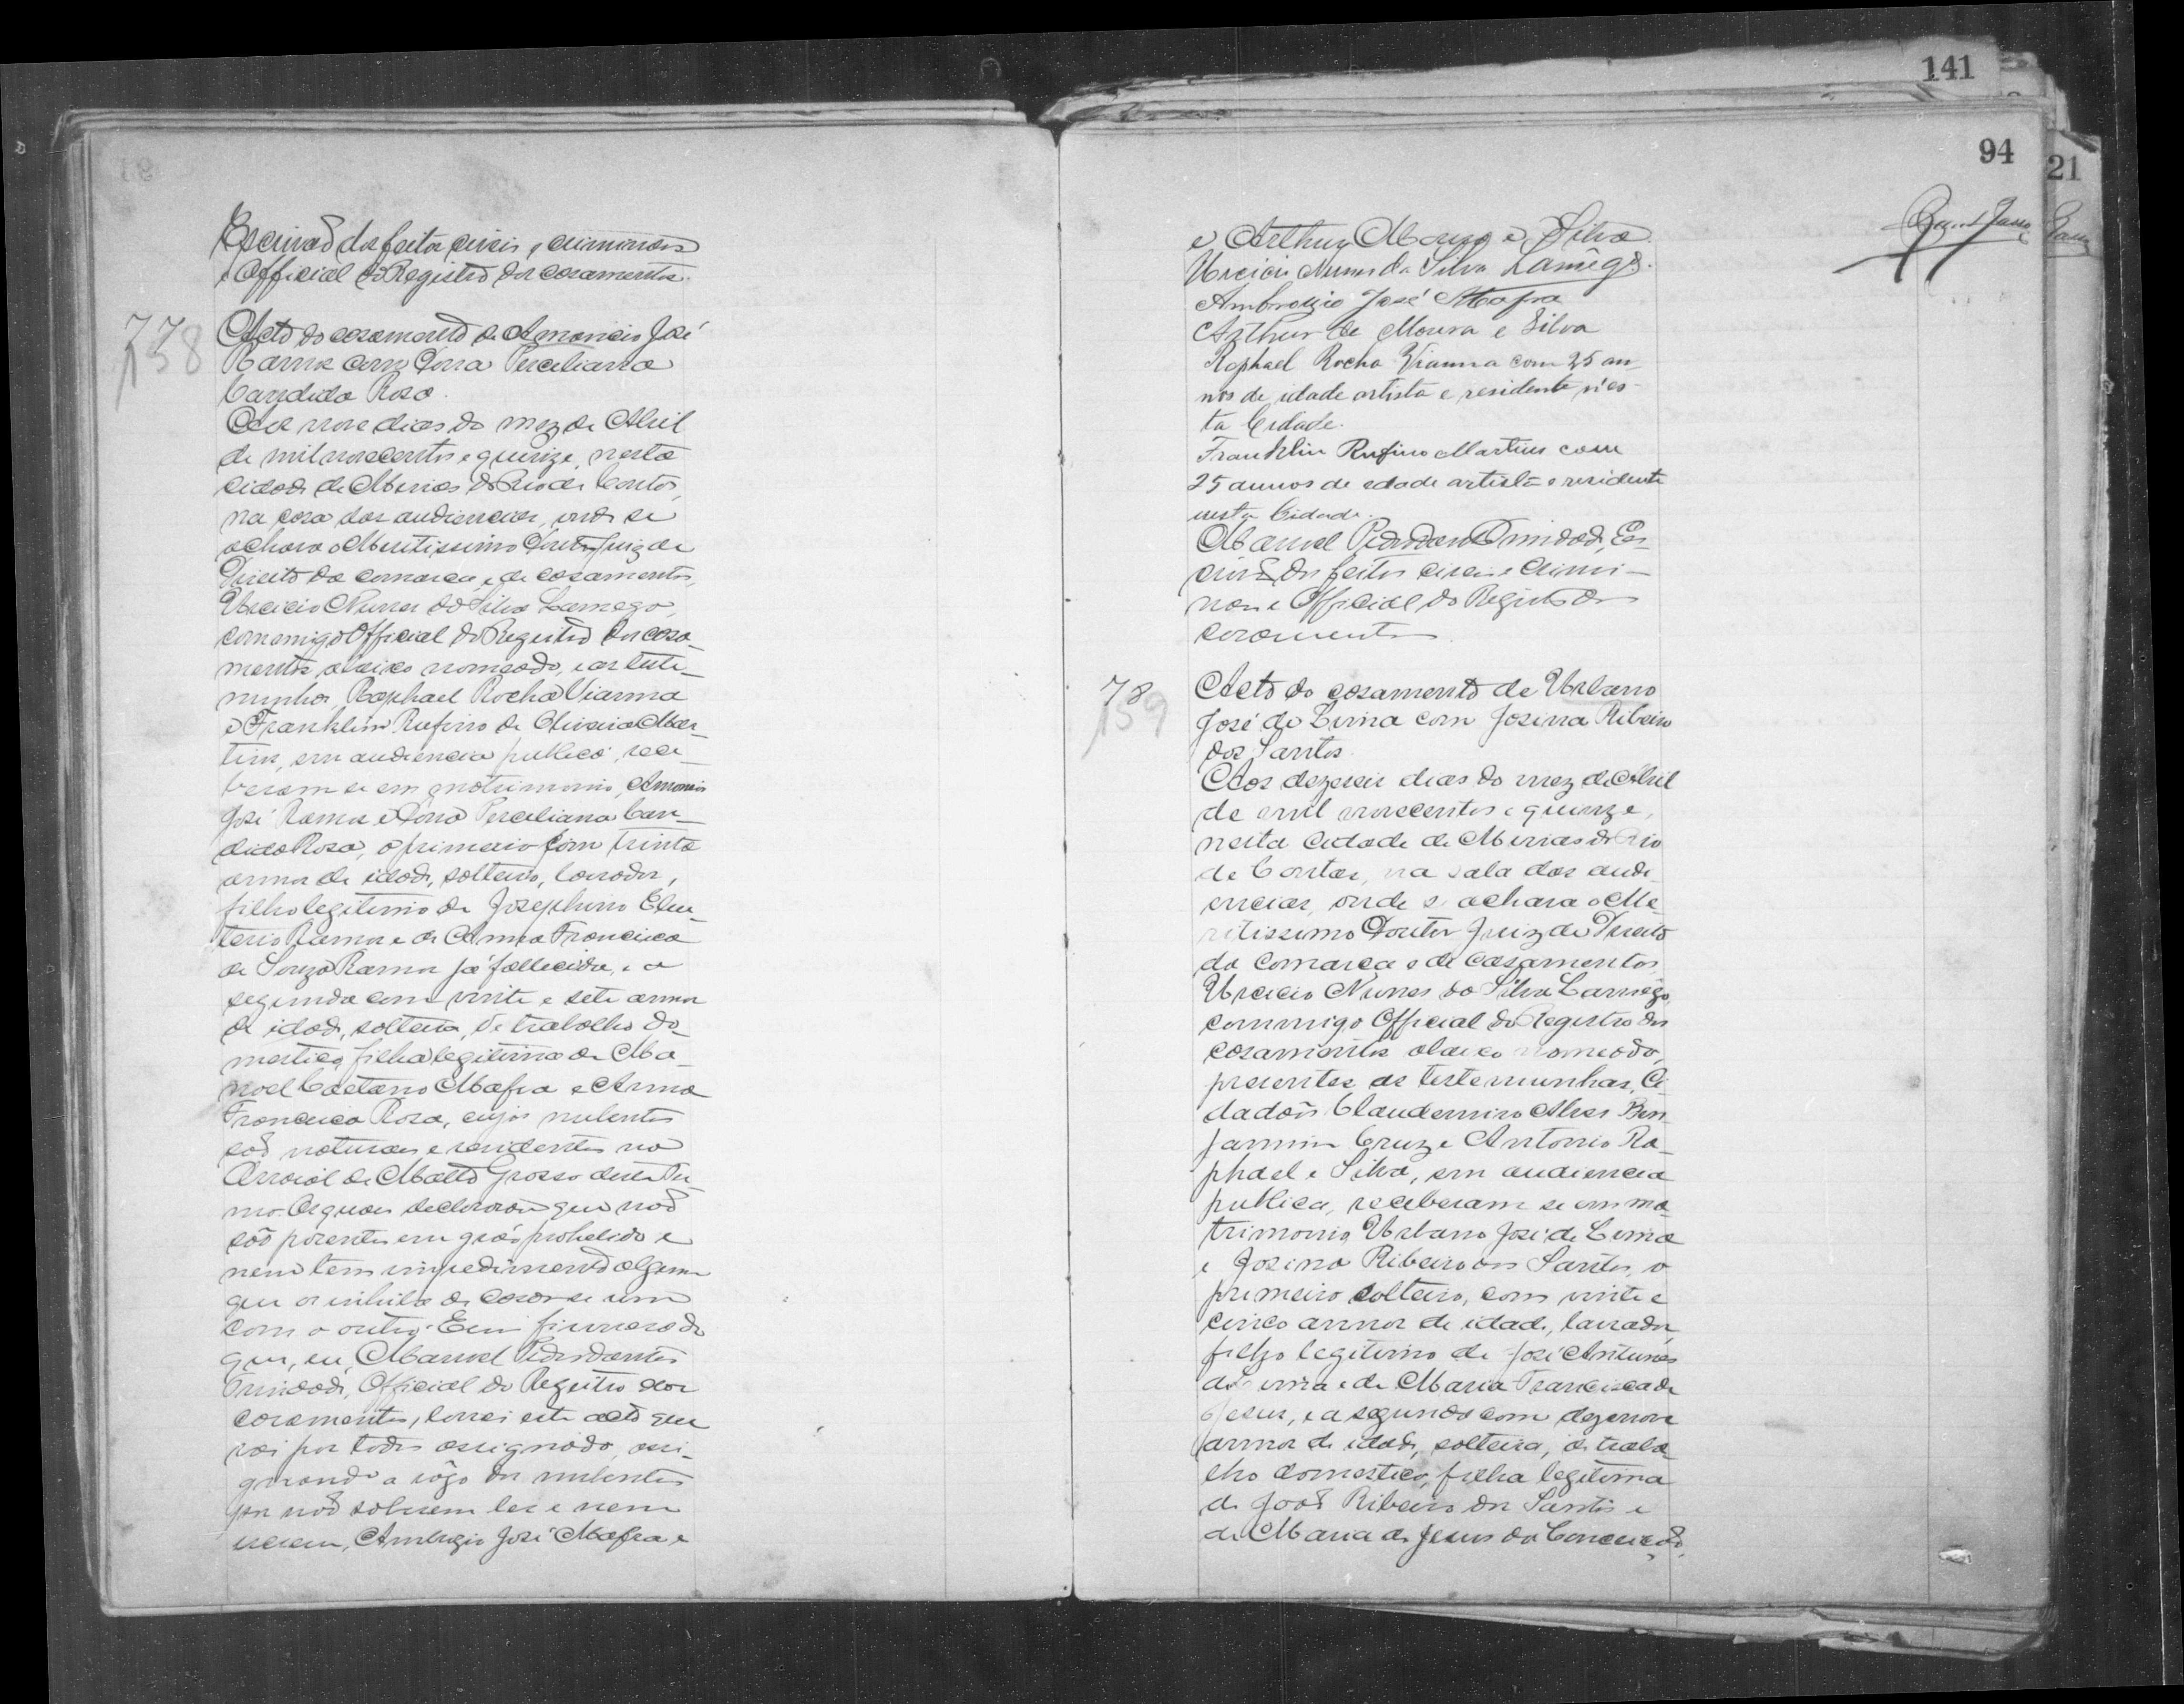 Escrivão dos feitos civeis e criminaes
e Official do Registro dos casamentos.
77
138
Acto do casamento de Amancio José
Ramos com Dona Perciliana
Candida Rosa.
Aos nove dias do mez de Abril
de mil novecentos e quinze, nesta
cidade de Minas do Rio de Contas,
na casa das audiencias, onde se
achava o Meritissimo Doutor Juiz de
Direito da comarca, e de casamentos,
Urcicio Nunes da Silva Lamego,
commigo Official do Registro dos casa-
mentos abaixo nomeado, e as teste-
munhas Raphael Rocha Vianna
e Franklin Rufino de Oliveira Mar-
tins, em audiencia publica, rece-
beram-se em matrimonio, Amancio
José Ramos e Dona Perciliana Can-
dida Rosa, o primeiro com trinta
annos de idade, solteiro, lavrador,
filho legitimo de Josephino Eleu-
terio Ramos e de Anna Francisca
de Souza Ramos já fallecida, e a
segunda com vinte e sete annos
de idade, solteira, de trabalho do-
mestico, filha legitima de Ma-
noel Caetano Mafra e Anna
Francisca Rosa, cujos nubentes
são naturaes e residentes no
Arraial de Matto Grosso deste Ter-
mo. Os quaes declararam que não
são parentes em gráo prohibido e
nem tem impedimento algum
que os inhiba de casar-se um
com o outro. Em firmeza do
que, eu, Manoel Pedro Dantas
Trindade, Official do Registro dos
casamentos, lavrei este acto que
vai por todos assignado, assi-
gnando a rôgo dos nubentes
por não saberem ler e nem
escrever, Ambrozio José Mafra e
141
94
21
e Arthur Moura e Silva.
Urcicio Nunes da Silva Lamego.
Ambrozio José Mafra
Arthur de Moura e Silva
Raphael Rocha Vianna com 25 an-
nos de idade artista e residente n'es-
ta Cidade.
Franklin Rufino Martins com
25 annos de edade artista e residente
nesta Cidade.
Manoel Pedro Dantas Trindade, Es-
crivão dos feitos civeis e crimi-
naes e Official do Registro dos
casamentos.
78
139
Acto do casamento de Urbano
José de Lima com Josina Ribeiro
dos Santos.
Aos dezeseis dias do mez de Abril
de mil novecentos e quinze,
nesta Cidade de Minas do Rio
de Contas, na sala das audi-
encias, onde se achava o Me-
ritissimo Doutor Juiz de Direito
da Comarca e de casamentos
Urcicio Nunes da Silva Lamego,
commigo Official do Registro dos
casamentos abaixo nomeado,
presentes as testemunhas, Ci-
dadãos Claudemiro Alves Ben-
jamim Cruz e Antonio Ra-
phael e Silva, em audiencia
publica, receberam-se em ma-
trimonio Urbano José de Lima
e Josina Ribeiro dos Santos, o
primeiro solteiro, com vinte e
cinco annos de idade, lavrador,
filho legitimo de José Antunes
de Lima e de Maria Francisca de
Jesus, e a segunda com dezenove
annos de idade, solteira, de traba-
lho domestico, filha legitima
de João Ribeiro dos Santos e
de Maria de Jesus da Conceição,